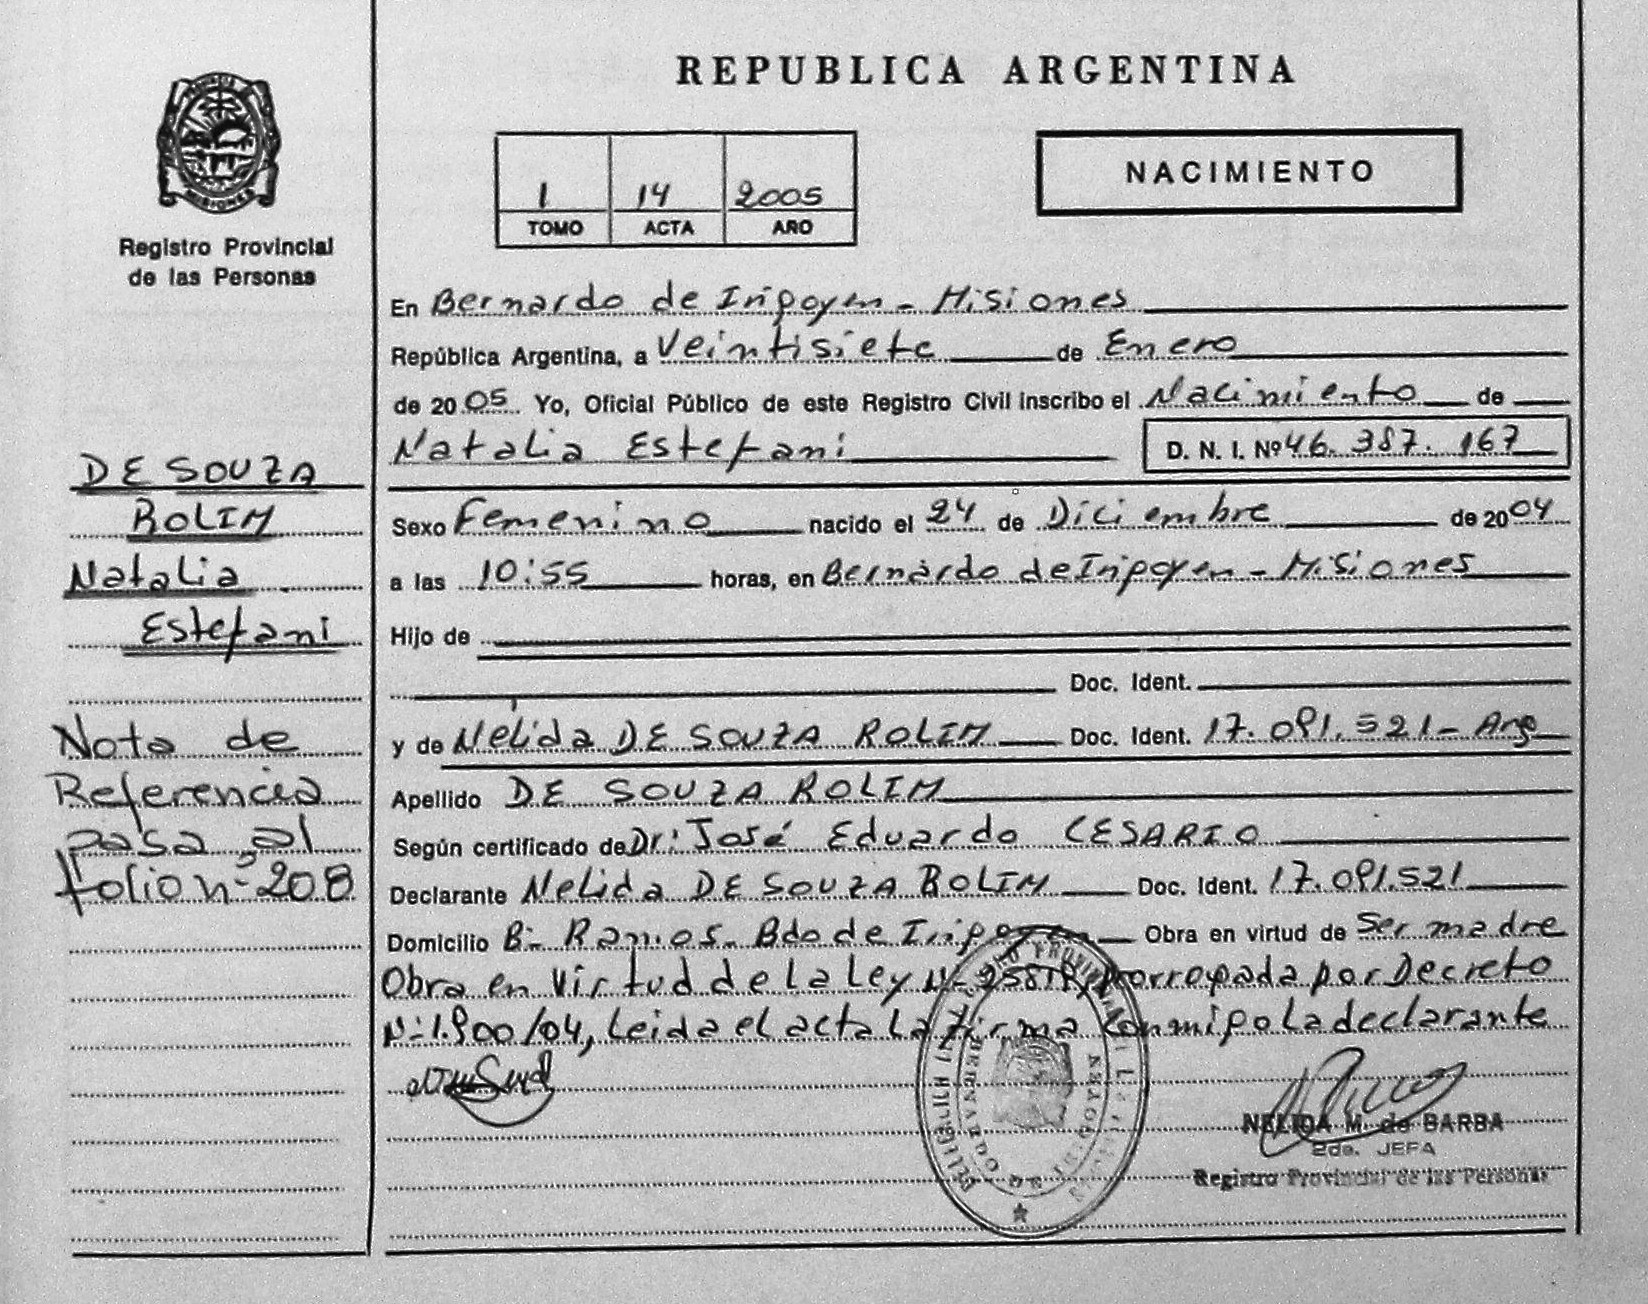 REPUBLICA ARGENTINA
MISIONES
Registro Provincial
de las Personas
1 14 2005
TOMO ACTA AÑO
NACIMIENTO
DE SOUZA
ROLIM
Natalia
Estefani
Nota de
Referencia
pasa al
folio nº 208
En Bernardo de Irigoyen - Misiones
República Argentina, a Veintisiete de Enero
de 20 05 Yo, Oficial Público de este Registro Civil inscribo el Nacimiento de
Natalia Estefani D. N. I. Nº 46.387.167
Sexo Femenino nacido el 24 de Diciembre de 20 04
a las 10:55 horas, en Bernardo de Irigoyen - Misiones
Hijo de
Doc. Ident.
y de Nélida DE SOUZA ROLIM Doc. Ident. 17.091.521 - Arg
Apellido DE SOUZA ROLIM
Según certificado de Dr: José Eduardo CESARIO
Declarante Nelida DE SOUZA ROLIM Doc. Ident. 17.091.521
Domicilio Bº Ramos - Bdo de Irigoyen Obra en virtud de Ser madre
Obra en Virtud de la Ley Nº prorrogada por Decreto
Nº 1.900/04, Leida el acta La firma conmigo la declarante
NELIDA M. de BARBA
2da. JEFA
Registro Provincial de las Personas